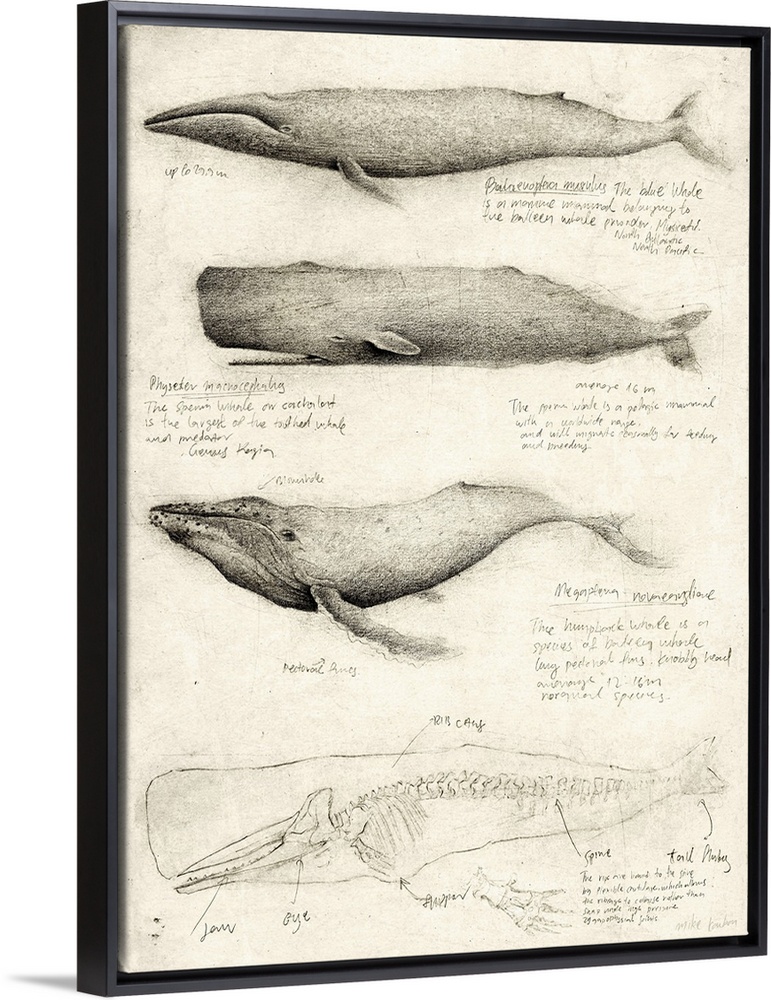 up to 29.9m
Balaenoptera musculus The blue Whale
is a marine mammal belonging to
the baleen whale
North
North Pacific
Physeter macrocephalus
The sperm whale or cachalot
is the largest of the toothed whale
and predator
Genus
average 16 m
The sperm whale is a pelagic mammal
with a worldwide range.
and will migrate seasonally for feeding
and breeding.
Blowhole
Megaptera novaeangliae
The humpback whale is a
species of baleen whale
long pectoral fins. Knobbly head
average 12-16m
rorqual species.
pectoral fins.
RIB CAGE
spine
tail flukes
The ribs are bound to the spine
by flexible cartilage, which allows
the ribcage to collapse rather than
snap under high pressure
flipper
Jaw
Eye
mike